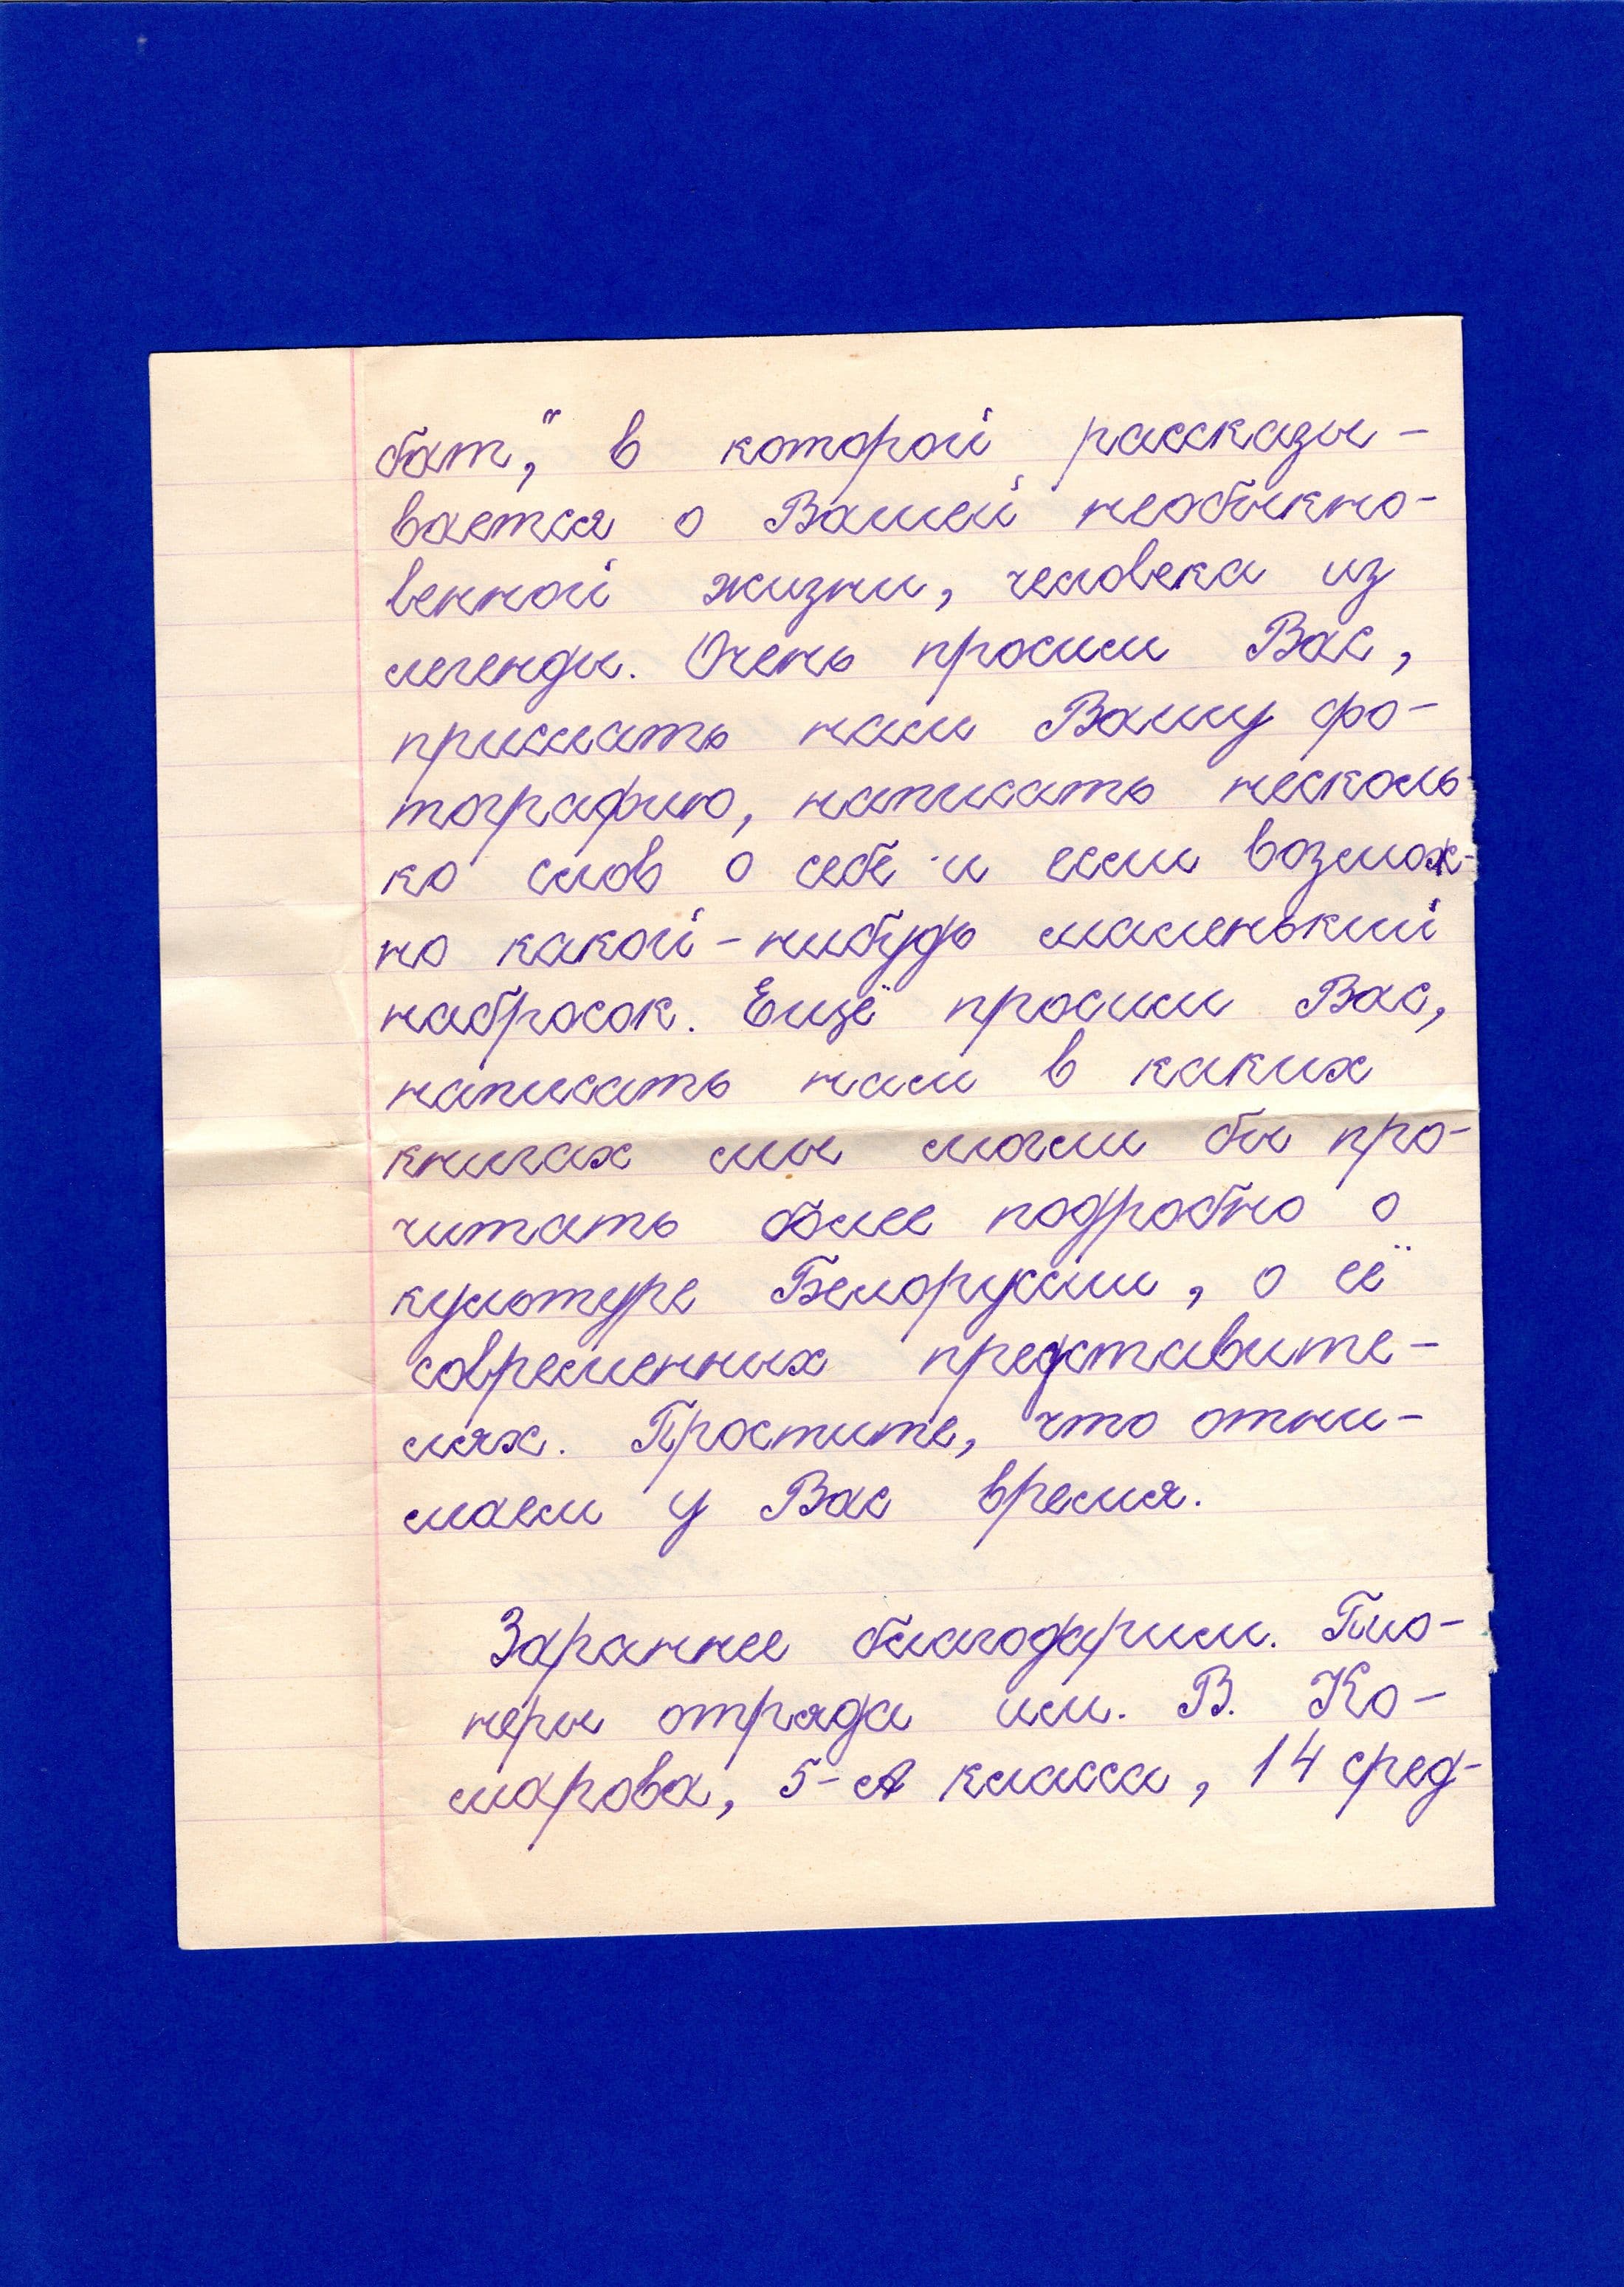 бат," в которой рассказы-
вается о Вашей необыкно-
венной жизни, человека из
легенды. Очень просим Вас,
прислать нам Вашу фо-
тографию, написать несколь-
ко слов о себе и если возмож-
но какой-нибудь маленький
набросок. Ещё просим Вас,
написать нам в каких
книгах мы могли бы про-
читать более подробно о
культуре Белоруссии, о её
современных представите-
лях. Простите, что отни-
маем у Вас время.
Зараннее благодарим. Пио-
неры отряда им. В. Ко-
марова, 5-А класса, 14 сред-